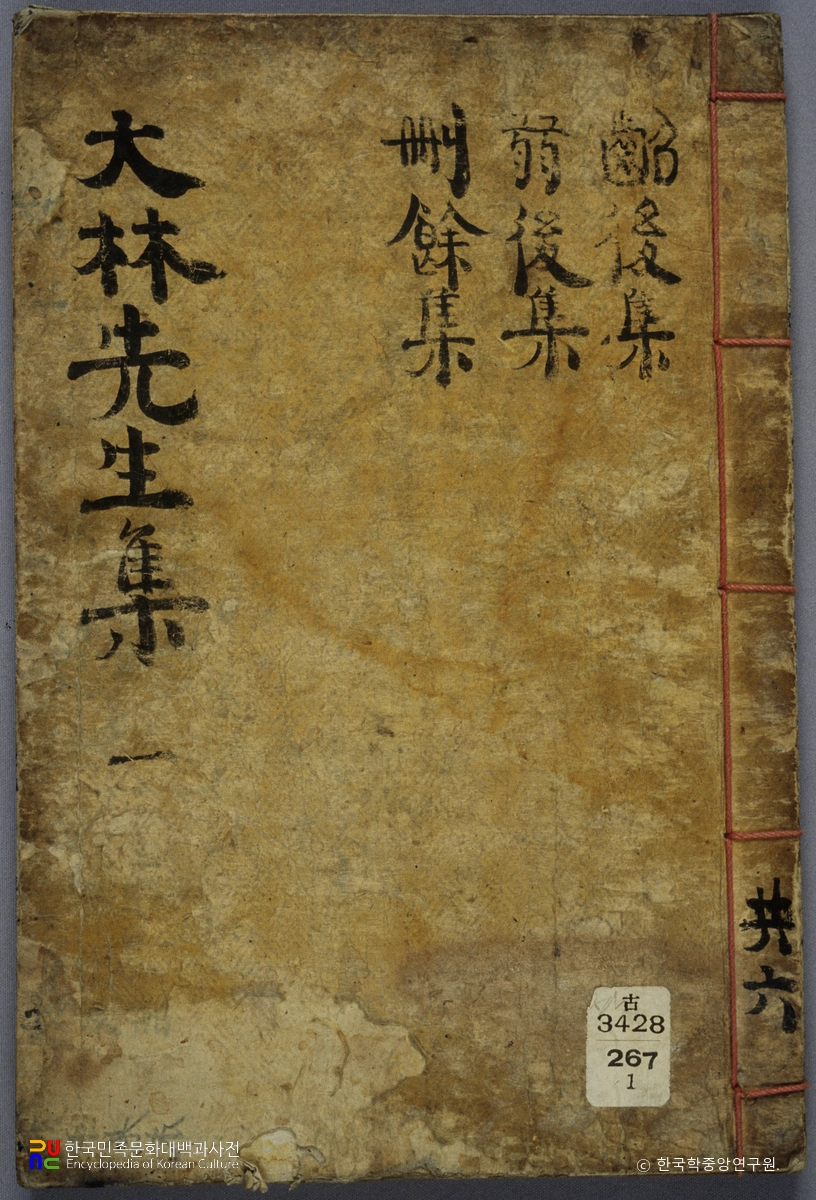 齠後集
弱後集
刪餘集
大林先生集 一
共六
古
3428
267
1
한국민족문화대백과사전
Encyclopedia of Korean Culture
© 한국학중앙연구원